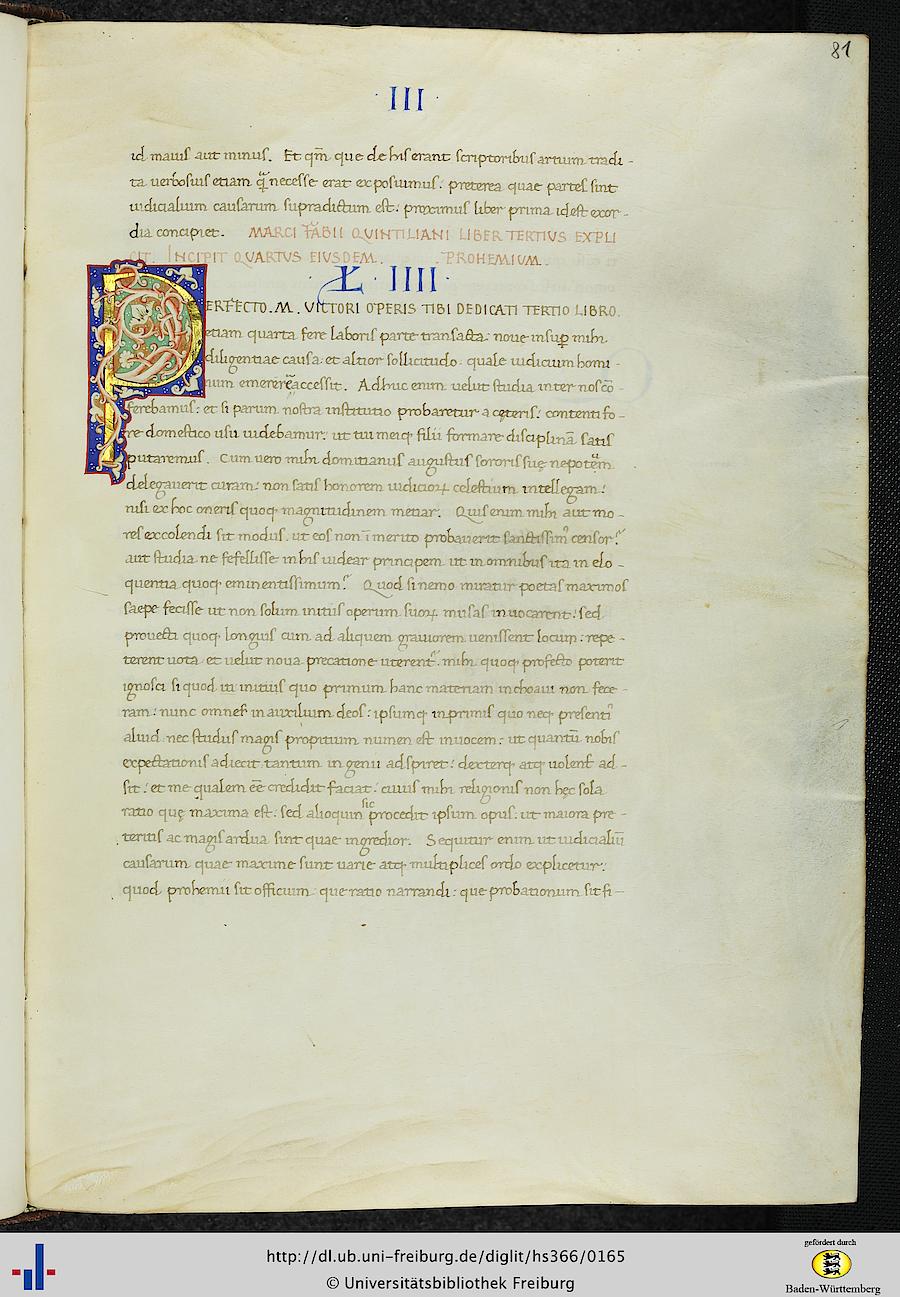 81
· III ·
id maius aut minus. Et qm̄ que de his erant scriptoribus artium tradi-
ta verbosius etiam q̄ necesse erat exposuimus: preterea quae partes sint
iudicialium causarum supradictum est: proximus liber prima idest exor-
dia concipiet. MARCI FABII QUINTILIANI LIBER TERTIUS EXPLI
CIT. INCIPIT QUARTUS EIUSDEM. PROHEMIUM.
L · IIII ·
PERFECTO. M. VICTORI OPERIS TIBI DEDICATI TERTIO LIBRO.
etiam quarta fere laboris parte transacta: noue insup mihi
diligentiae causa: et altior sollicitudo: quale iudicium homi-
num emererēaccessit. Adhuc enim velut studia inter nos cō-
ferebamus: et si parum nostra institutio probaretur a cęteris: contenti fo-
re domestico usu videbamur: ut tui meiq; filii formare disciplinā satis
putaremus. Cum vero mihi domitianus augustus sororis suę nepotem
delegauerit curam: non satis honorem iudicioꝝ celestium intellegam:
nisi ex hoc oneris quoq; magnitudinem metiar. Quis enim mihi aut mo-
res excolendi sit modus. ut eos non ī merito probauerit sanctissim' censor?
aut studia ne fefellisse in his videar principem ut in omnibus ita in elo-
quentia quoq; eminentissimum? Quod si nemo miratur poetas maximos
saepe fecisse ut non solum initiis operum suoꝝ musas inuocarent: sed
prouecti quoq; longius cum ad aliquem grauiorem uenissent locum: repe-
terent uota et uelut noua precatione uterent': mihi quoq; profecto poterit
ignosci si quod in initiis quo primum hanc materiam inchoaui non fece-
ram: nunc omnes in auxilium deos: ipsumq; inprimis quo neq; presenti'
aliud nec studiis magis propitium numen est inuocem: ut quantū nobis
expectationis adiecit tantum ingenii adspiret: dexterq; atq; uolens ad-
sit: et me qualem eē credidit faciat: cuius mihi religionis non hęc sola
ratio quę maxima est: sed alioquin sic procedit ipsum opus: ut maiora pre-
teritis ac magis ardua sint quae ingredior. Sequitur enim ut iudicialiū
causarum quae maxime sunt uarie atq; multiplices ordo explicetur:
quod prohemii sit officium: que ratio narrandi: que probationum sit fi-
http://dl.ub.uni-freiburg.de/diglit/hs366/0165
© Universitätsbibliothek Freiburg
gefördert durch
Baden-Württemberg